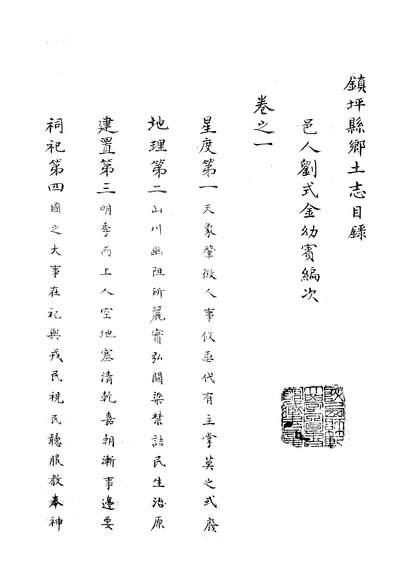 鎮坪縣鄉土志目錄
邑人劉式金幼賓編次
卷之一
星度第一 天象肇微人事攸丞代有主掌莫之或廢
地理第二 山川幽阻所麗實弘關梁禁詰民生治原
建置第三 明季而上人空地塞清乾嘉朝漸事邊要
祠祀第四 國之大事在祀與戎民視民聽服教奉神